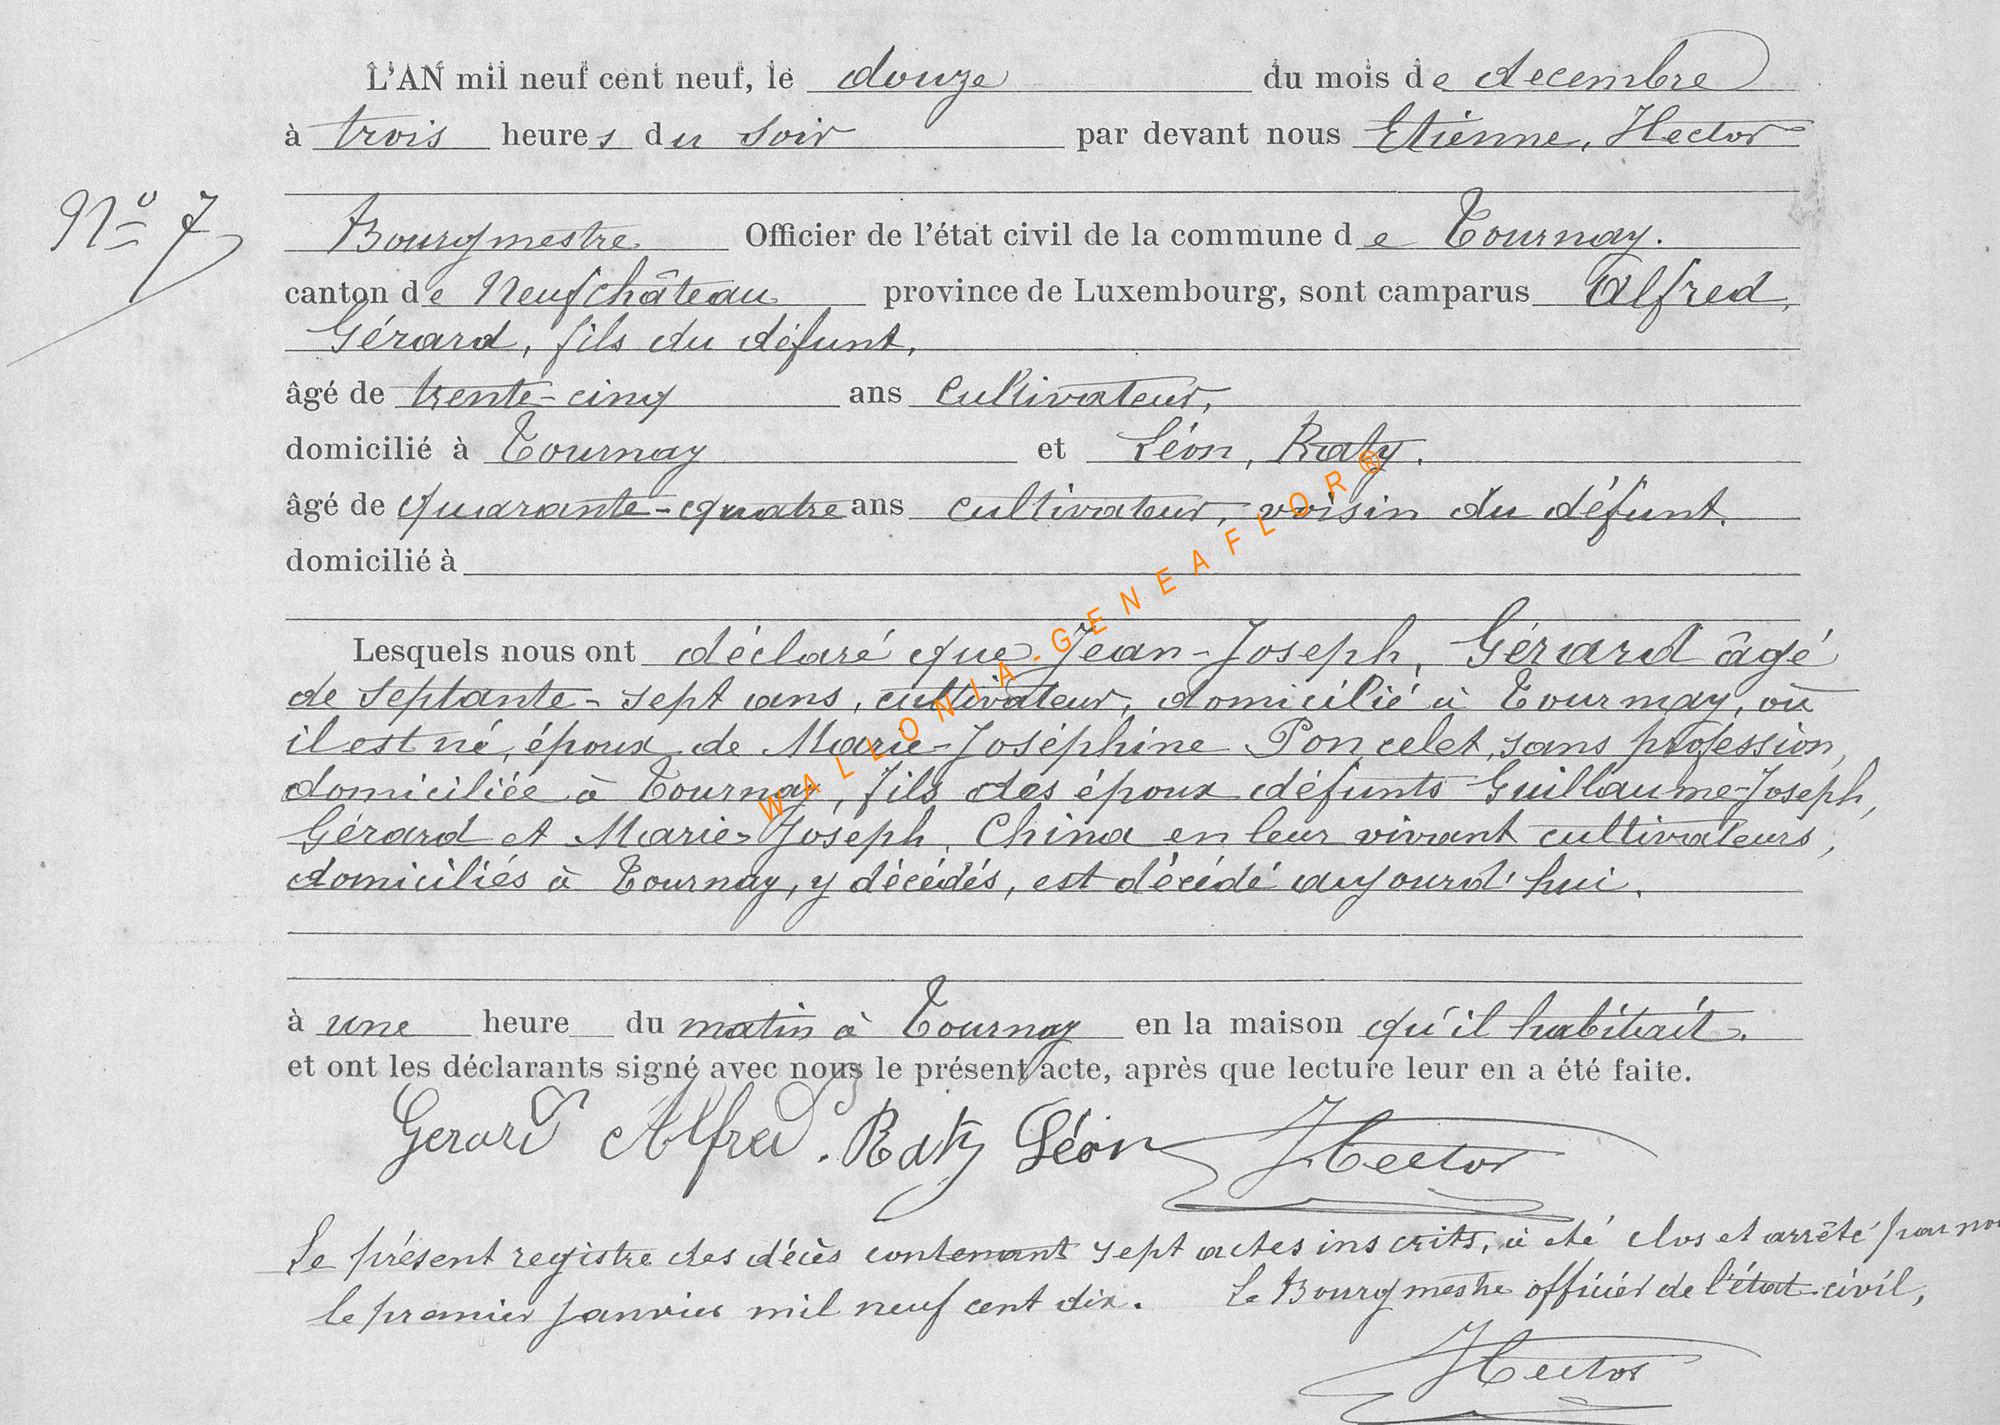 L'AN mil neuf cent neuf, le douze du mois de decembre
à trois heures du soir par devant nous Etienne, Hector
N° 7
Bourgmestre Officier de l'état civil de la commune de Tournay.
canton de Neufchâteau province de Luxembourg, sont camparus Alfred,
Gérard, fils du défunt,
âgé de trente-cinq ans cultivateur,
domicilié à Tournay et Léon, Raty.
âgé de quarante-quatre ans cultivateur, voisin du défunt.
domicilié à
Lesquels nous ont déclaré que Jean-Joseph, Gérard âgé
de septante-sept ans, cultivateur, domicilié à Tournay, où
il est né, époux de Marie-Joséphine Poncelet, sans profession,
domiciliée à Tournay, fils des époux défunts Guillaume-Joseph,
Gérard et Marie-Joseph, China en leur vivant cultivateurs,
domiciliés à Tournay, y décédés, est décédé aujourd'hui.
à une heure du matin à Tournay en la maison qu'il habitait.
et ont les déclarants signé avec nous le présent acte, après que lecture leur en a été faite.
Gerard Alfred. Raty Léon Hector
Le présent registre des décès contenant sept actes inscrits, a été clos et arrêté par nous
le premier janvier mil neuf cent dix. Le Bourgmestre officier de l'état-civil,
Hector
WALLONIA-GENEAFLOR®